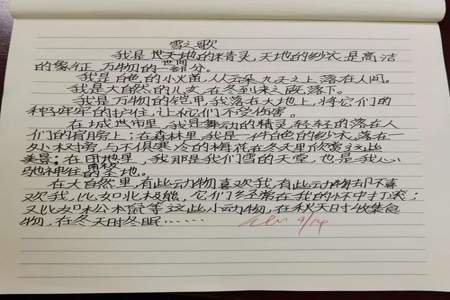 雪之歌
我是地天地的精灵，天地的纱衣，是高洁
的象征，万物的世间一部分。
我是白色的小火苗，从云朵九天之上落在人间。
我是大自然的儿女，在冬到来之际，落下。
我是万物的铠甲，我落在大地上，将它们的
种子牢牢的护住，让它们不受伤害。
在城世市里，我是舞动的精灵，轻轻的落在人
们的肩膀上；在森林里，我是一件白色的纱衣，落在一
小木中旁，与不俱寒冷的梅花在冬天里欣赏这些
美景；在田地里，我那是我们雪的天堂，也是我心
驰神往的圣地。
在大自然里，有些动物喜欢我，有些动物却不喜
欢我，比如北极熊，它们冬冬常在我的怀中打滚；
又比如松公木鼠等这些小动物，在秋天时收集食
物，在冬天时冬眠……
9/14